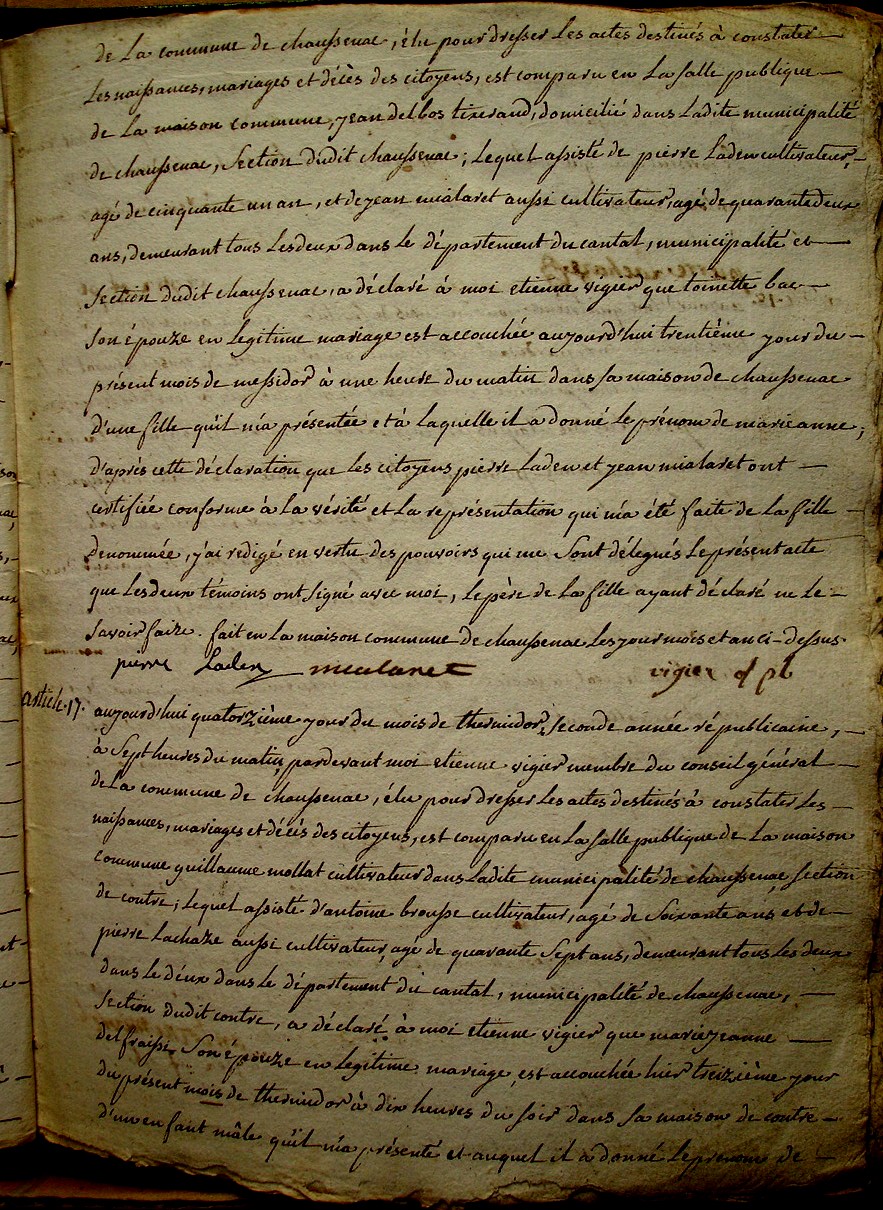 de La commune de chaussenac, élu pour dresser Les actes destinés à constater
Les naissances, mariages et décès des citoyens, est comparu en La salle publique
de La maison commune, jean delbos tixerand, domicilié dans Ladite municipalité
de chaussenac, Section dudit chaussenac; Lequel assisté de pierre Laden cultivateur,
agé de cinquante un an, et de jean mialaret aussi cultivateur, agé de quarante deux
ans, demeurant tous Les deux dans Le département du cantal, municipalité et
Section dudit chaussenac, a déclaré à moi etienne vigier que toinette bac
Son épouze en Legitime mariage est accouchée aujourd'hui trentième jour du
présent mois de messidor à une heure du matin dans sa maison de chaussenac
d'une fille qu'il m'a présentée et à Laquelle il a donné Le prénom de marieanne;
d'après cette déclaration que Les citoyens pierre Laden et jean mialaret ont
certifiée conforme à La vérité et La représentation qui m'a été faite de La fille
denommée, j'ai redigé en vertu des pouvoirs qui me Sont délegués Le présent acte
que Les deux témoins ont signé avec moi, Le père de La fille ayant déclaré ne Le
Savoir faire. fait en La maison commune de chaussenac Les jour mois et an ci-dessus.
pierre Laden mialaret vigier of pb
article. 17. aujourd'hui quatorzième jour du mois de thermidor, Seconde année républicaine,
à Sept heures du matin, pardevant moi etienne vigier membre du conseil général
de La commune de chaussenac, élu pour dresser Les actes destinés à constater Les
naissances, mariages et décès des citoyens, est comparu en La salle publique de La maison
commune guillaume mollat cultivateur dans Ladite municipalité de chaussenac, Section
de contre; Lequel assisté d'antoine brousse cultivateur, agé de Soixante ans et de
pierre Lachaze aussi cultivateur, agé de quarante Sept ans, demeurant tous Les deux
dans Le deux dans Le département du cantal, municipalité de chaussenac,
Section dudit contre, a déclaré à moi etienne vigier que marie jeanne
delfraissi Son épouze en Legitime mariage, est accouchée hier treizième jour
du présent mois de thermidor à dix heures du soir dans sa maison de contre
d'un enfant mâle qu'il m'a présenté et auquel il a donné Le prenom de